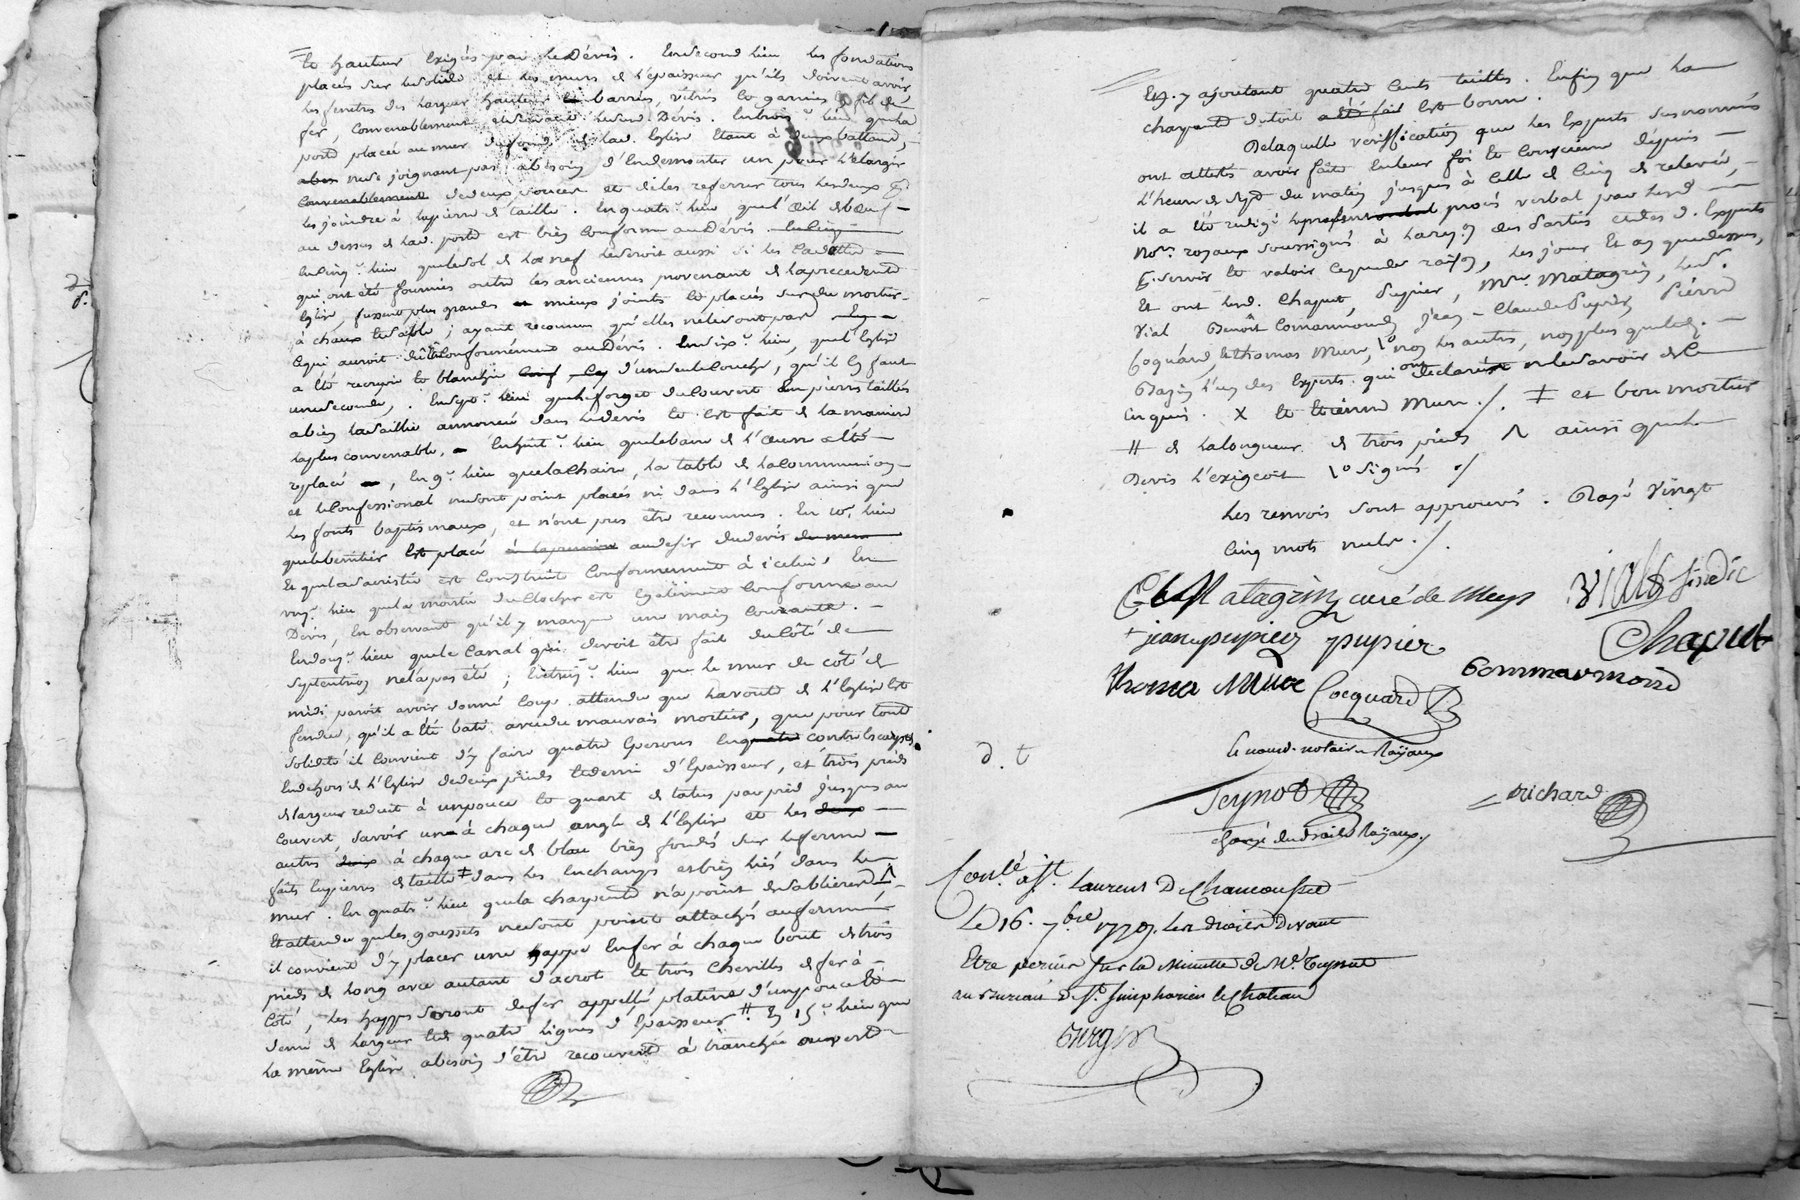 et hauteur exigés par le Dévis. En second lieu les fondations
placés sur le solide et les murs de l'épaisseur qu'ils doivent avoir
les fenetres des largeur hauteur barrées, vitrés et garnies de fil de
fer, convenablement et suivant led. Dévis. En trois.e lieu que la
porte placée au mur du fond de lad. Eglise étant à deux battans,
ne se joignant pas a besoin d'en demonter un pour l'elargir
convenablement de deux pouces et de les referrer tous les deux
les joindre à la pierre de taille. En quatr.e lieu que l'œil de bœuf
au dessus de lad. porte est bien conforme au Dévis.
En cinq.e lieu que le sol de la nef le seroit aussi si les cadettes
qui ont été fournies outre les anciennes provenant de la precedente
Eglise, fussent plus grandes mieux joints et placées sur du mortier
à chaux et sable; ayant reconnu qu'elles ne le sont pas
ce qui auroit dû être conformément au Dévis. En six.e lieu, que l'Eglise
a été recrepie et blanchie d'une seule couche, qu'il en faut
une seconde. En sept.e lieu que le forget du couvert en pierres taillés
a bien la saillie annoncée dans le devis et est fait de la maniere
la plus convenable. En huit.e lieu que le banc de l'œuvre a été
replacé, En 9.e lieu que la chaire, la table de la communion
et le Confessional ne sont point placés ni dans l'Eglise ainsi que
les fonts baptismaux, et n'ont pus être reconnus. En 10.e lieu
que le benitier est placé au desir du devis
Et que la sacristie est construite conformement à icelui. En
onz.e lieu que la montée du clocher est également conforme au
Devis, En observant qu'il y manque une main courante.
En douz.e lieu que le canal qui devoit être fait du côté de
septentrion ne l'a pas été; En treiz.e lieu que le mur du côté de
midi paroit avoir donné coup attendu que la voute de l'Eglise est
fendue, qu'il a été bati avec du mauvais mortier, que pour toute
solidité il convient d'y faire quatre éperons en contrescarpes
En dehors de l'Eglise de deux pieds et demi d'épaisseur, et trois pieds
de largeur reduit à un pouce et quart de talus par pied jusques au
couvert, savoir un à chaque angle de l'Eglise et les
autres à chaque arc de bleu bien fondés sur le ferme
faits en pierres de taille ‡ dans les enchamps et bien liés dans le
mur. En quatr.e lieu que la charpente n'a point de sablieres
Et attendu que les goussets ne sont point attachés au fermes
il convient d'y placer une happe en fer à chaque bout de trois
pieds de long avec autant d'acrot et trois chevilles de fer à
côté, les happes seront de fer appellé platine d'un pouce et
demi de largeur et de quatre lignes d'épaisseur # En 15.e lieu que
la même Eglise a besoin d'être recouverte à tranchée ouverte
En y ajoutant quatre cents tuilles. Enfin que la
charpente du toit est bonne.
De laquelle vériffication que les Experts susnommés
ont attesté avoir faite en leur foi et conscience depuis
l'heure de sept du matin jusques à celle de cinq de relevée,
il a été redigé le présent procès verbal par lesd.
No.res royaux soussignés à la req.on des parties et desd. Experts
p. servir et valoir ce que de raison, les jour et an que dessus,
Et ont lesd. Chaput, Pupier, M.re Matagrin, led. S.r
Vial Benoît Commarmond, Jean-Claude Pupier, Pierre
Coquard, et thomas Mure, \o non les autres, non plus que led.
Bazin l'un des Experts qui ont déclaré ne le savoir de ce
enquis. X et Etienne Mure ./. ‡ et bon mortier
# de la longueur de trois pieds Λ ainsi que le
Devis l'exigeoit \o signé ./
Les renvois sont approuvés. Rayé vingt
cinq mots nuls ./.
Matagrin curé de Meys Vial sindic
jean pupier pupier Chaput
thoma Mure Cocquard Commarmond
notaire Royaux
Teynod richard
Conlé à St. Laurent De Chamousset
Le 16. 7.bre
Etre perçus sur la Minutte de Me. Teynod
au Bureau de St. Simphorien le Chateau